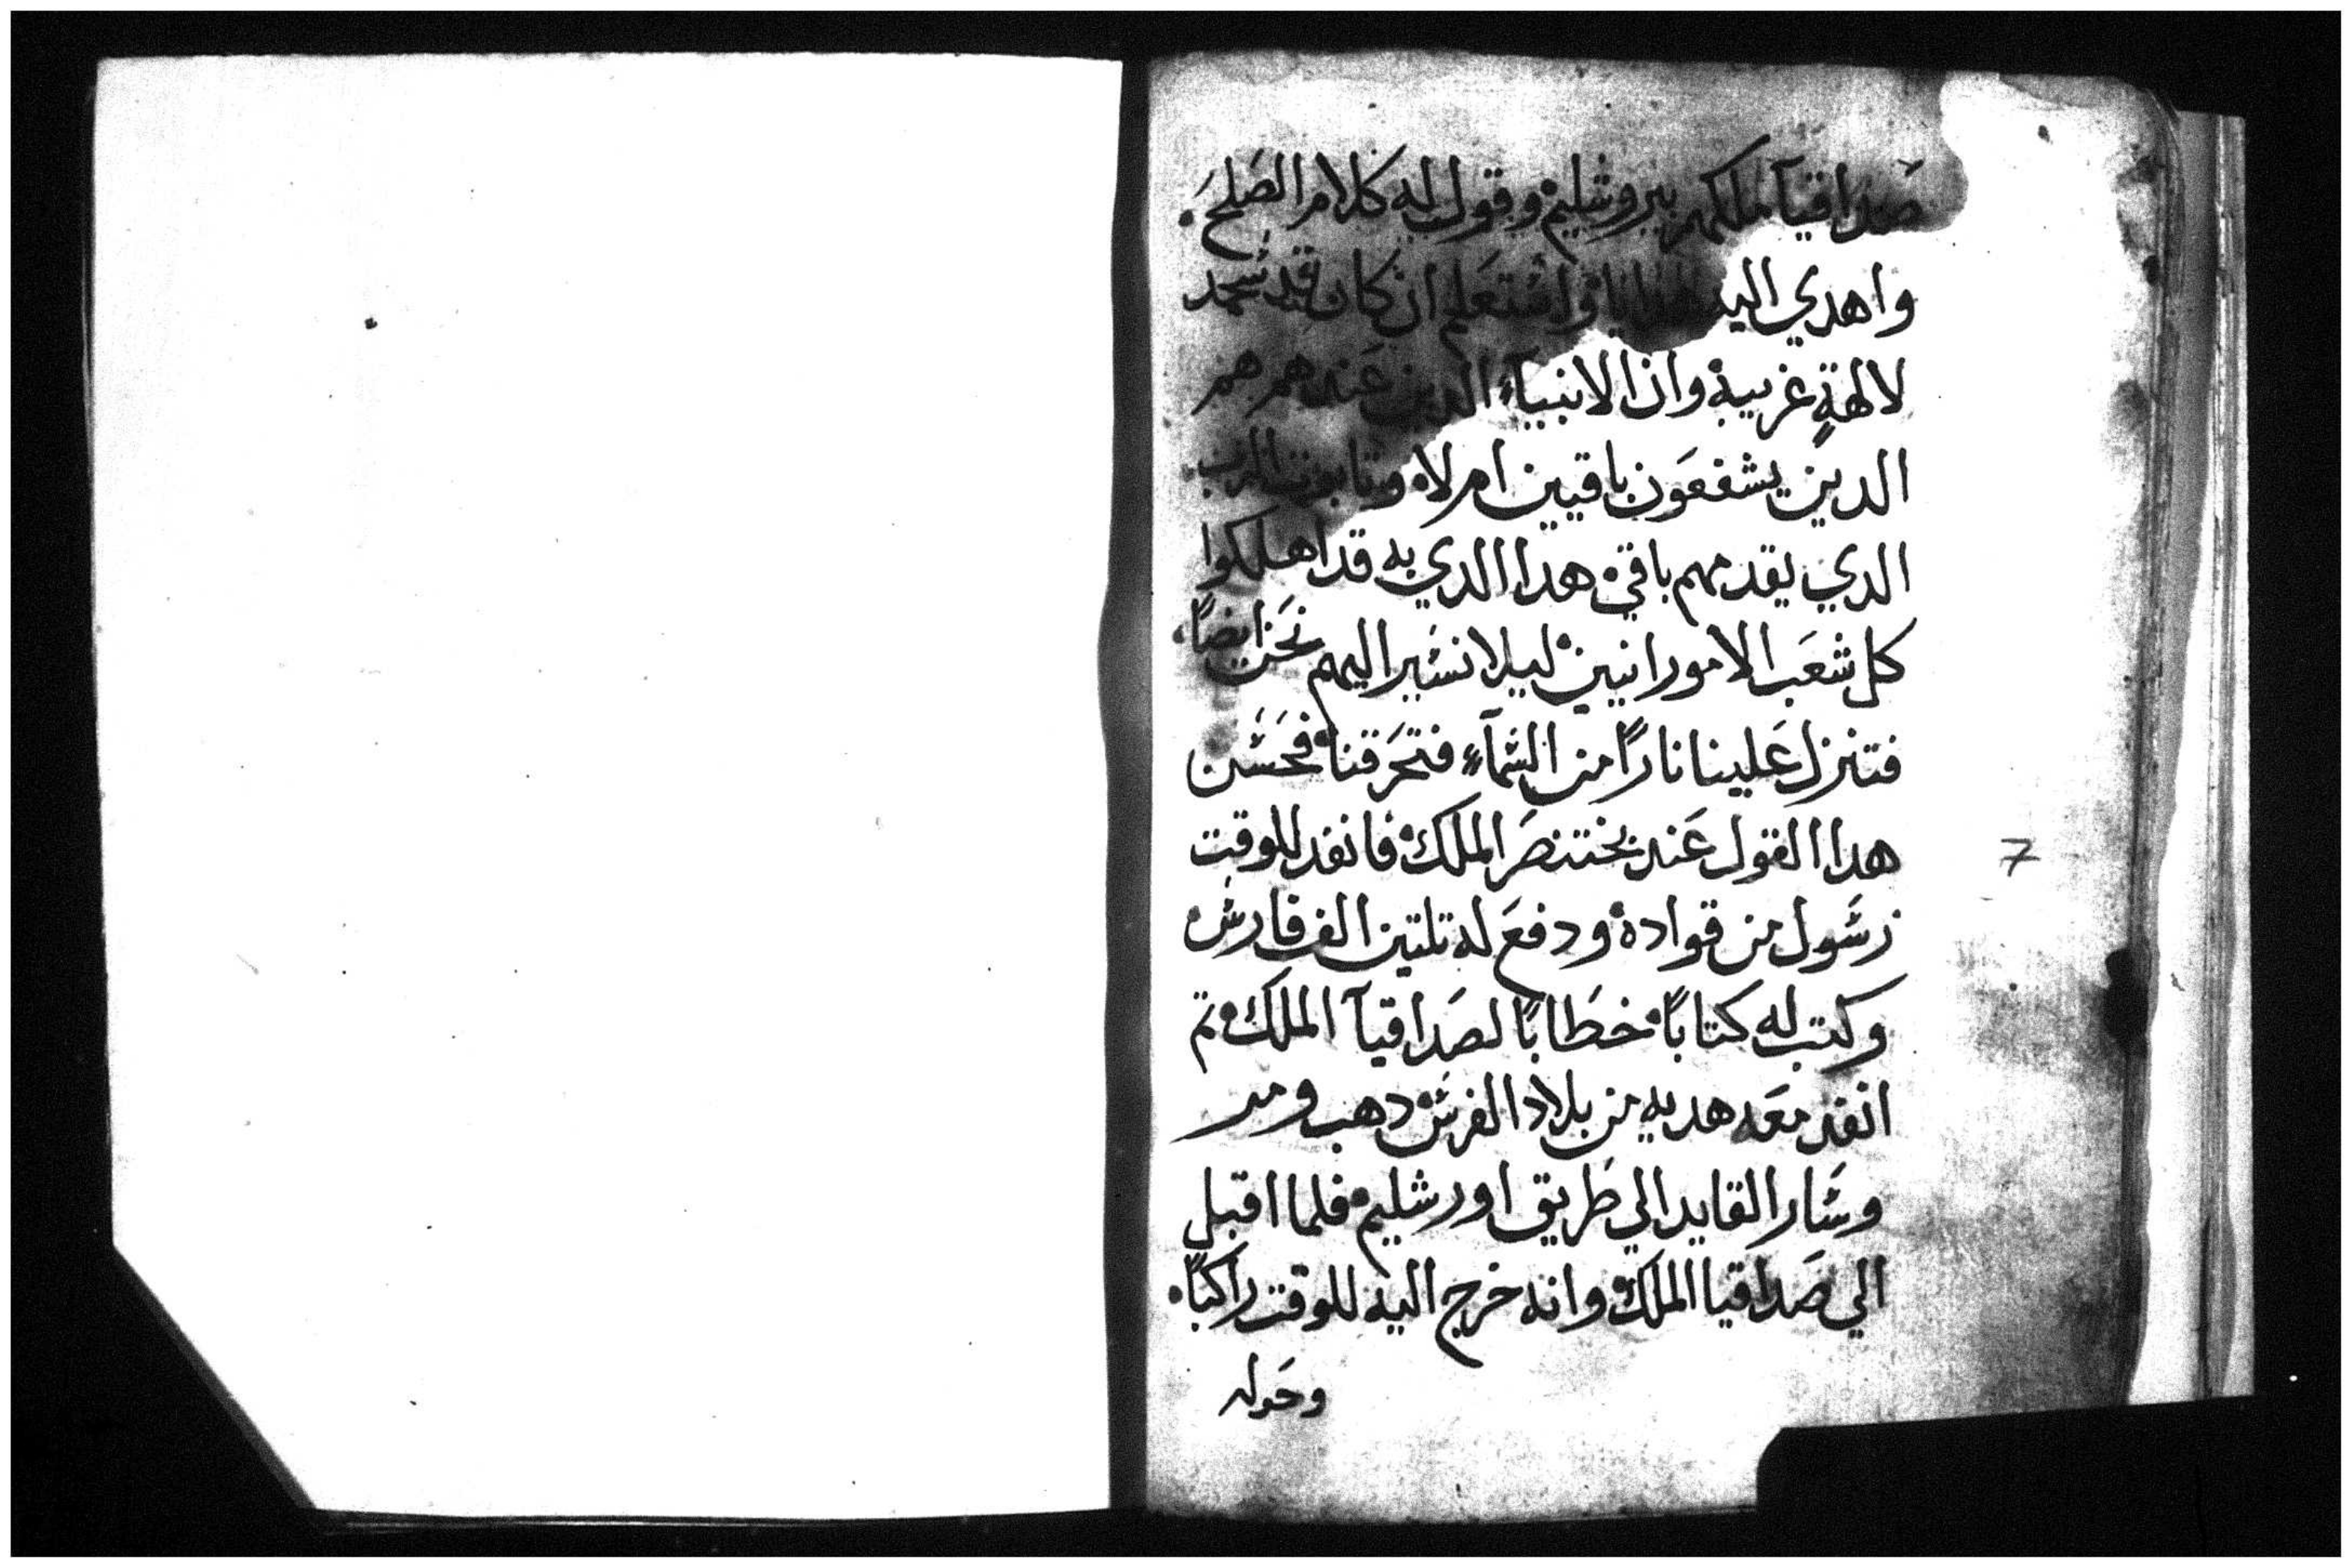 صَداقيآ ملكهم بيروشليم وقول له كلام الصَلحَ.
واهدي اليه هدايا واسْتعَلم ان كان قد سْجد
لالهةٍ غريبة وان الانبيآء الدين عَندهم هم
الدين يشفعَون باقيين ام لاه وتابوت الرب
الدي يقدمهم باقي هدا الدي به قد اهلكوا
كل شعَب الامورانيين ليلا نسْير اليهم نحَن ايضاً
فتنزل عَلينا ناراً من السْمآءٍ فتحَرقنا فحَسْن
هدا القول عَند بختنصَر الملك فانفد للوقت
رسْول من قواده ودفعَ له تلتين الف فارسْ
وكتب له كتاباً خطَاباً لصَداقيآ الملك تم
انفد معَه هديه من بلاد الفرسْ دهب ومر
وسْار القايد الي طَريق اورشليم فلما اقبل
الي صَداقيا الملك وانه خرج اليه للوقت راكباً.
وحَوله
7